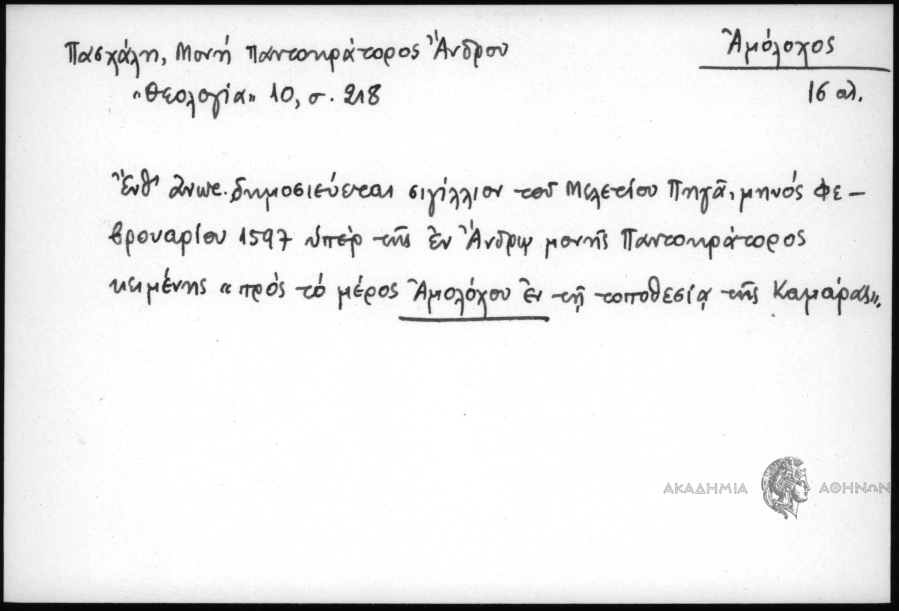 Πασχάλη, Μονή Παντοκράτορος Ἄνδρου
Ἀμόλοχος
«Θεολογία» 10, σ. 218
16 αἰ.
Ἔνθ' ἀνωτ. δημοσιεύεται σιγίλλιον τοῦ Μελετίου Πηγᾶ, μηνός Φε-
βρουαρίου 1597 ὑπέρ τῆς ἐν Ἄνδρῳ μονῆς Παντοκράτορος
κειμένης «πρὸς τὸ μέρος Ἀμολόχου ἐν τῇ τοποθεσίᾳ τῆς Καμάρας».
ΑΚΑΔΗΜΙΑ ΑΘΗΝΩΝ